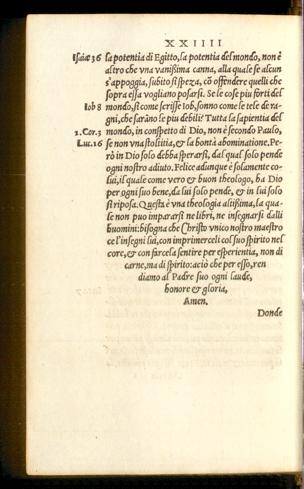 XXIIII
Isaiæ 36 la potentia di Egitto, la potentia del mondo, non è
altro che vna vanißima canna, alla quale se alcun
s'appoggia, subito si speza, cō offendere quelli che
sopra essa vogliano posarsi. Se le cose piu forti del
Iob 8 mondo, si come scrisse Iob, sonno come le tele de ra-
gni, che sarāno le piu debili? Tutta la sapientia del
1. Cor. 3 mondo, in conspetto di Dio, non è secondo Paulo,
Luc. 16 se non vna stoltitia, & la bontà abominatione, Pe-
rò in Dio solo debba sperarsi, dal qual solo pende
ogni nostro adiuto. Felice adunque è solamente co-
lui, il quale come vero & buon theologo, ha Dio
per ogni suo bene, da lui solo pende, & in lui solo
si riposa. Questa è vna theologia altißima, la qua-
le non puo impararsi ne libri, ne insegnarsi dalli
huomini: bisogna che Christo vnico nostro maestro
ce l'insegni lui, con imprimerceli col suo spirito nel
core, & con farcela sentire per esperientia, non di
carne, ma di spirito: aciò che per esso, ren
diamo al Padre suo ogni laude,
honore & gloria,
Amen.
Donde